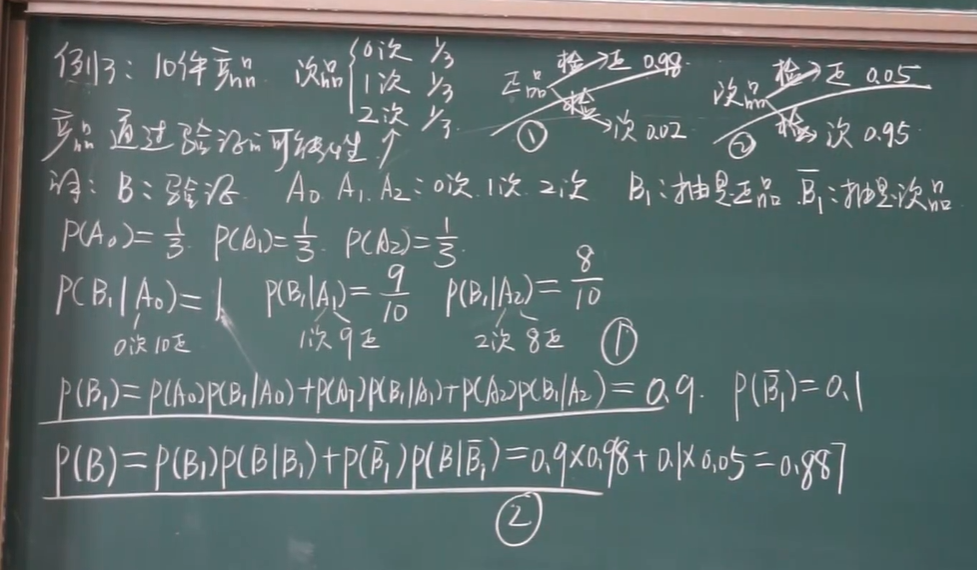 例3: 10件产品 次品 { 0次 1/3 正品 检→正 0.98 次品 检→正 0.05
1次 1/3 检→次 0.02 检→次 0.95
2次 1/3 ① ②
产品通过验收的可能性 ↑
设: B: 验收 A₀ A₁ A₂ = 0次 1次 2次 B₁: 抽是正品 B̄₁: 抽是次品
P(A₀)=1/3 P(A₁)=1/3 P(A₂)=1/3
P(B₁|A₀)=1 P(B₁|A₁)=9/10 P(B₁|A₂)=8/10
0次10正 1次9正 2次8正 ①
P(B₁)=P(A₀)P(B₁|A₀)+P(A₁)P(B₁|A₁)+P(A₂)P(B₁|A₂)=0.9. P(B̄₁)=0.1
P(B)=P(B₁)P(B|B₁)+P(B̄₁)P(B|B̄₁)=0.9×0.98+0.1×0.05=0.887
②